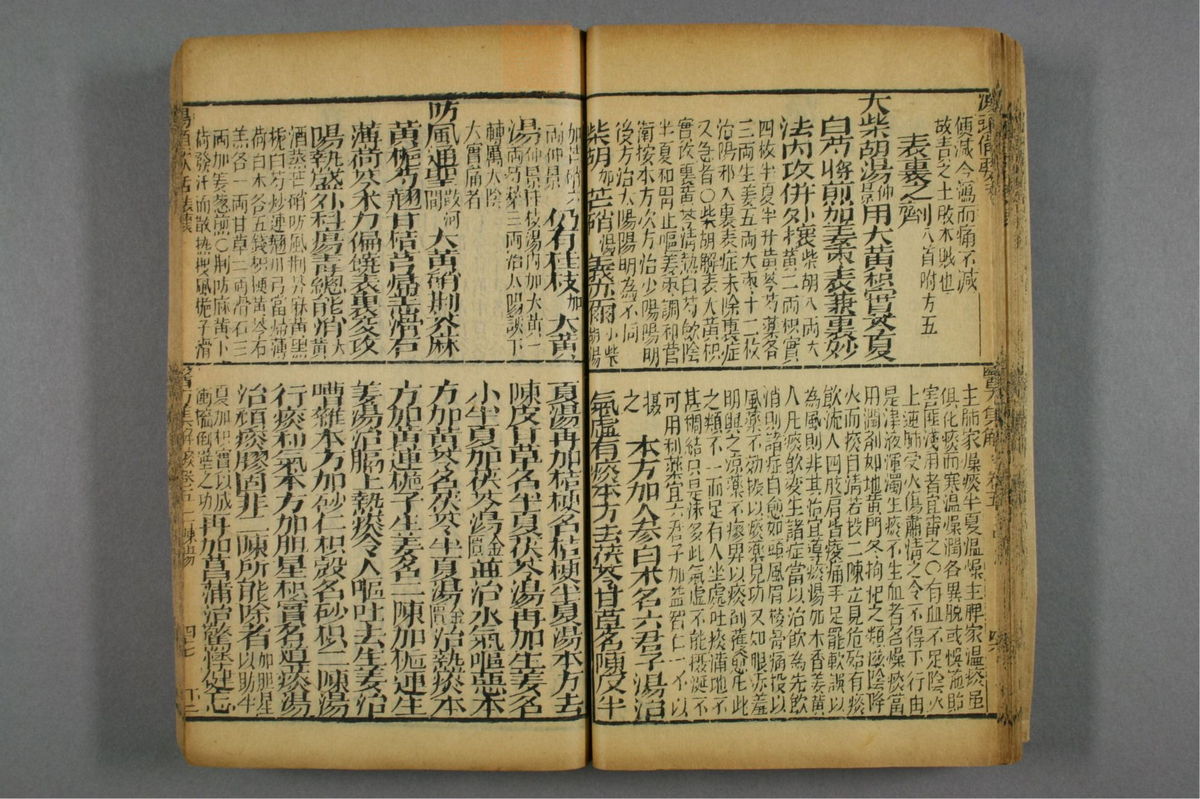 便減今瀉而痛不減
故責之土敗木賊也
表裏之劑八首附方五
大柴胡湯仲景用大黃枳實芩夏
白芍將煎加薑棗表兼裏妙
法內攻併外攘柴胡八兩大
四枚半夏半升黃芩芍藥各
三兩生姜五兩大棗十二枚
治陽邪入裏表症未除裏症
又急者○柴胡解表大黃枳
實攻裏黃芩清熱白芍歛陰
半夏和胃止嘔姜棗調和營
衛按本方次方治少陽陽明
後方治太陽陽明為不同
柴胡加芒硝湯義亦爾小柴胡湯
加芒硝六兩仲景仍有桂枝加大黃
湯仲景桂枝湯內加大黃一
兩芍藥三兩治太陽誤下
轉屬太陰
大實痛者
防風通聖散河間大黃硝荊芥麻
黃梔芍翹甘桔芎歸膏滑石
薄荷芩朮力偏饒表裏交攻
陽熱盛外科瘍毒總能消大黃
酒蒸芒硝防風荊芥麻黃黑
梔白芍炒連翹川芎當歸薄
荷白朮各五錢桔梗黃芩石
羔各一兩甘草二兩滑石三
兩加姜葱煎○荊防麻黃卜
荷發汗而散熱搜風梔子滑
主肺家燥痰半夏溫燥主脾家濕痰雖
俱化痰而寒溫燥潤各異脫或悞施貽
害匪淺用者宜審之○有血不足陰火
上逆肺受火傷肅清之令不得下行由
是津液渾濁生痰不生血者名燥痰當
用潤劑如地黃門冬拘杞之類滋陰降
火而痰自清若投二陳立見危殆有痰
飲流入四肢肩背痠痛手足罷軟誤以
為風則非其治宜導痰湯加木香姜黃
人凡痰飲變生諸症當以治飲為先飲
消則諸症自愈如頭風眉稜骨痛投以
風藥不効投以痰藥見功又如眼赤羞
明與之涼藥不瘳畀以痰劑獲愈凡此
之類不一而足有人坐處吐痰滿地不
甚稠結只是沫多此氣虛不能攝涎不
可用利藥宜六君子加益智仁一不以
攝之本方加人參白朮名六君子湯治
氣虛有痰本方去茯苓甘草名陳皮半
夏湯再加桔梗名桔梗半夏湯本方去
陳皮甘草名半夏茯苓湯再加生姜名
小半夏加茯苓湯金匱並治水氣嘔噦本
方加黃芩名茯苓半夏湯金匱治熱痰本
方加黃連梔子生姜名二陳加梔連生
姜湯治膈上熱痰令人嘔吐去生姜治
嘈雜本方加砂仁枳殼名砂枳二陳湯
行痰利氣本方加胆星枳實名導痰湯
治頑痰膠固非二陳所能除者加胆星以助半
夏加枳實以成
衝墻倒壁之功再加菖蒲治驚悸健忘